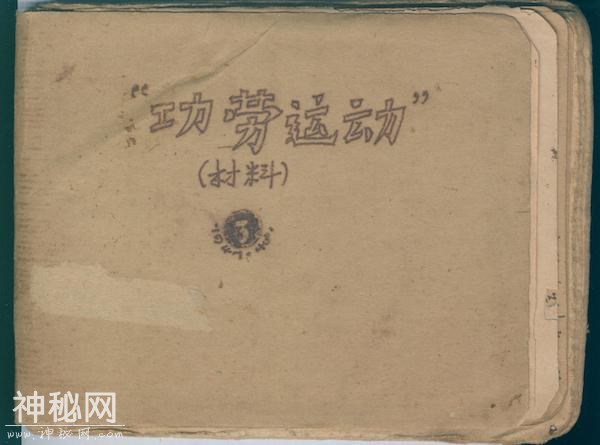 “功劳运动”
(材料)
3
神秘网
www.神秘网.com